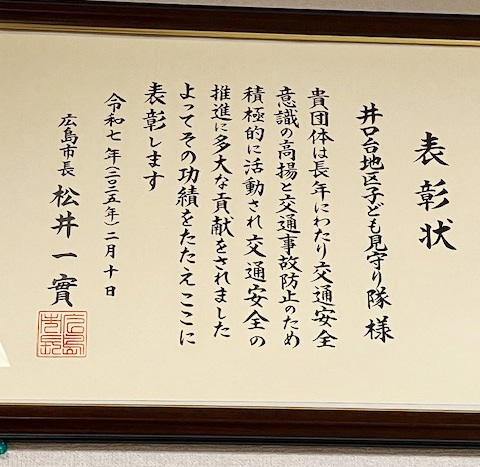 表彰状
井口台地区子ども見守り隊 様
貴団体は長年にわたり交通安全
意識の高揚と交通事故防止のため
積極的に活動され交通安全の
推進に多大な貢献をされました
よってその功績をたたえここに
表彰します
令和七年(二〇二五年)二月十日
広島市長 松井一實
広島市長